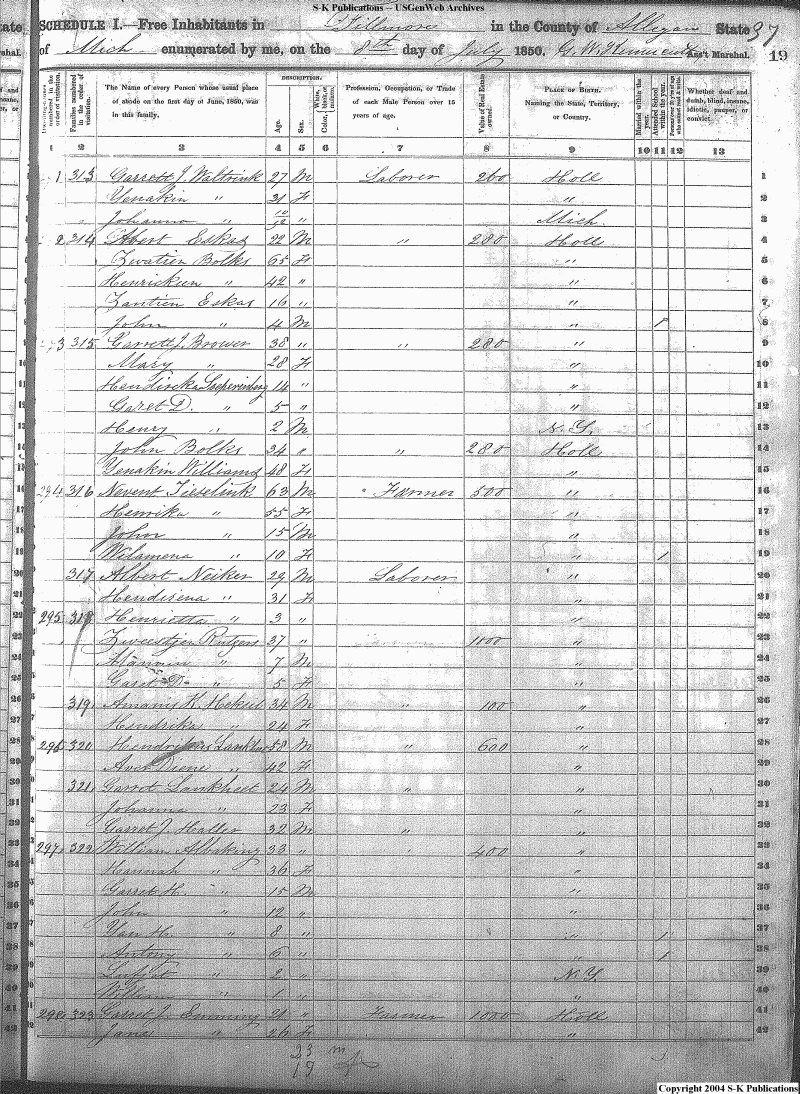 S-K Publications -- USGenWeb Archives
SCHEDULE I.—Free Inhabitants in Fillmore in the County of Allegan State 37
of Mich enumerated by me, on the 8th day of July 1850. G. W. Ass't Marshal. 19
DESCRIPTION.
The Name of every Person whose usual place of abode on the first day of June, 1850, was in this family.
Dwelling-houses numbered in the order of visitation.
Families numbered in the order of visitation.
Age.
Sex.
Color, White, black, or mulatto.
Profession, Occupation, or Trade of each Male Person over 15 years of age.
Value of Real Estate owned.
PLACE OF BIRTH. Naming the State, Territory, or Country.
Married within the year.
Attended School within the year.
Whether deaf and dumb, blind, insane, idiotic, pauper, or convict.
1 2 3 4 5 6 7 8 9 10 11 12 13
1 313 Garrett J. Waltrink 27 M Laborer 260 Holl 1
Yenakin " 31 F " 2
Johanna " 10/12 " Mich. 3
2 314 Abert Eskas 22 M " 280 Holl 4
Zwatien Bolks 65 F " 5
Henrickien " 42 " " 6
Zantien Eskas 16 " " 7
John " 4 M " 1 8
3 315 Garrett J. Brower 38 " " 280 " 9
Mary " 28 F " 10
Hendircka 14 " " 11
Garet D. " 5 " " 12
Henry " 2 M N.Y. 13
John Bolks 34 " " 280 Holl 14
Yenakin Williams 48 F " 15
294 316 Nevent Tieselink 63 M Farmer 500 " 16
Henrika " 55 F " 17
John " 15 M " 18
Wilamena " 10 F " 1 19
317 Albert Neiker 29 M Laborer " 20
Hendirena " 31 F " 21
295 318 Henrietta " 3 " " 22
Zweestjen Rutgers 37 " 1000 " 23
" 7 M " 24
Garet D. " 5 F " 25
319 Amanis K. Heksel 34 M " 100 " 26
Hendrika " 24 F " 27
296 320 58 M " 600 " 28
Diene " 42 F " 29
321 Garrot Lankheet 24 M " " 30
Johanna " 23 F " 31
Garret J. Haller 32 M " " 32
297 322 William Albaking 33 " " 400 " 33
Hannah " 36 F " 34
Garret H. " 15 M " 35
John " 12 " " 36
Yan H. " 8 " " 1 37
Antony " 6 " " 1 38
" 2 " N.Y. 39
William " 1 " " 40
298 323 Garret J. Emming 21 " Farmer 1000 Holl 41
Jana " 26 F " 42
23 m
19 f
Copyright 2004 S-K Publications